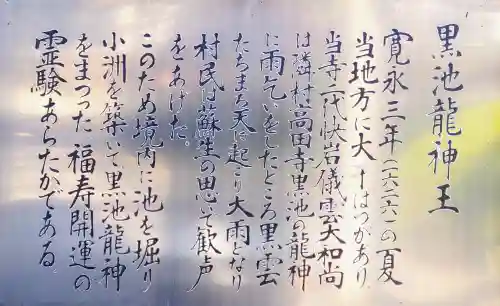 黒池龍神王
寛永三年(一六二六)の夏
当地方に大干ばつがあり
当寺二代快岩儀雲大和尚
は隣村高田寺黒池の龍神
に雨乞いをしたところ黒雲
たちまち天に起こり大雨となり
村民は蘇生の思いで歓声
をあげた。
このため境内に池を掘り
小洲を築いて黒池龍神
をまつった 福寿開運の
霊験あらたかである